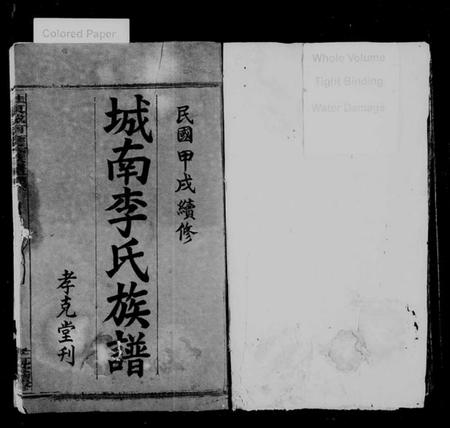 Colored Paper
Whole Volume
Tight Binding
Water Damage
民國甲戌續修
城南李氏族譜
孝克堂刊